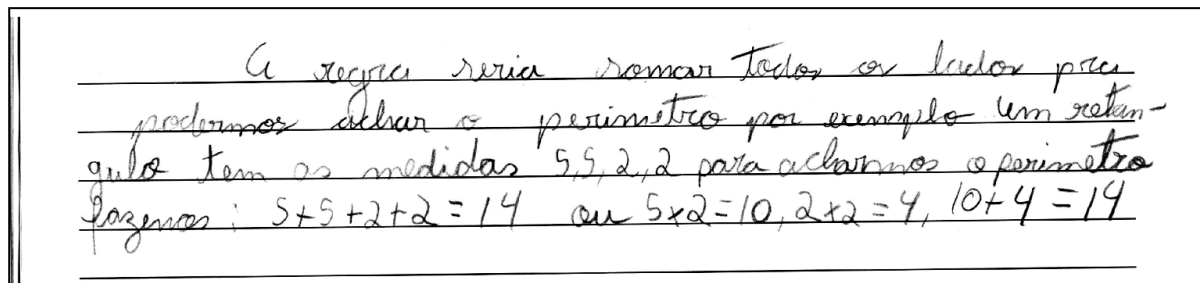 A regra seria somar todos os lados pra
podermos achar o perimetro por exemplo um retan-
gulo tem as medidas 5,5,2,2 para acharmos o perimetro
fazemos: 5+5+2+2=14 ou 5x2=10, 2x2=4, 10+4=14